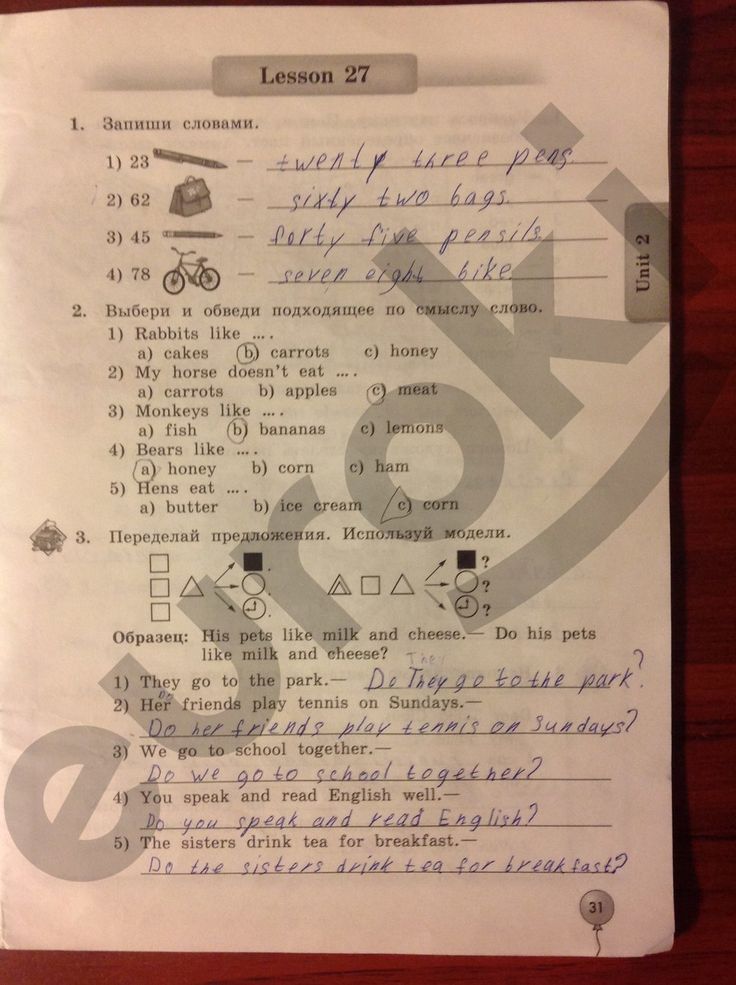 Lesson 27
1. Запиши словами.
1) 23 — twenty three pens.
2) 62 — sixty two bags.
3) 45 — forty five pensils.
4) 78 — seven eight bike.
Unit 2
2. Выбери и обведи подходящее по смыслу слово.
1) Rabbits like ... .
a) cakes b) carrots c) honey
2) My horse doesn't eat ... .
a) carrots b) apples c) meat
3) Monkeys like ... .
a) fish b) bananas c) lemons
4) Bears like ... .
a) honey b) corn c) ham
5) Hens eat ... .
a) butter b) ice cream c) corn
3. Переделай предложения. Используй модели.
. ?
. ?
. ?
Образец: His pets like milk and cheese.— Do his pets
like milk and cheese?
They
1) They go to the park.— Do They go to the park?
Do
2) Her friends play tennis on Sundays.—
Do her friends play tennis on Sundays?
3) We go to school together.—
Do we go to school together?
4) You speak and read English well.—
Do you speak and read English?
5) The sisters drink tea for breakfast.—
Do the sisters drink tea for breakfast?
31
euroki